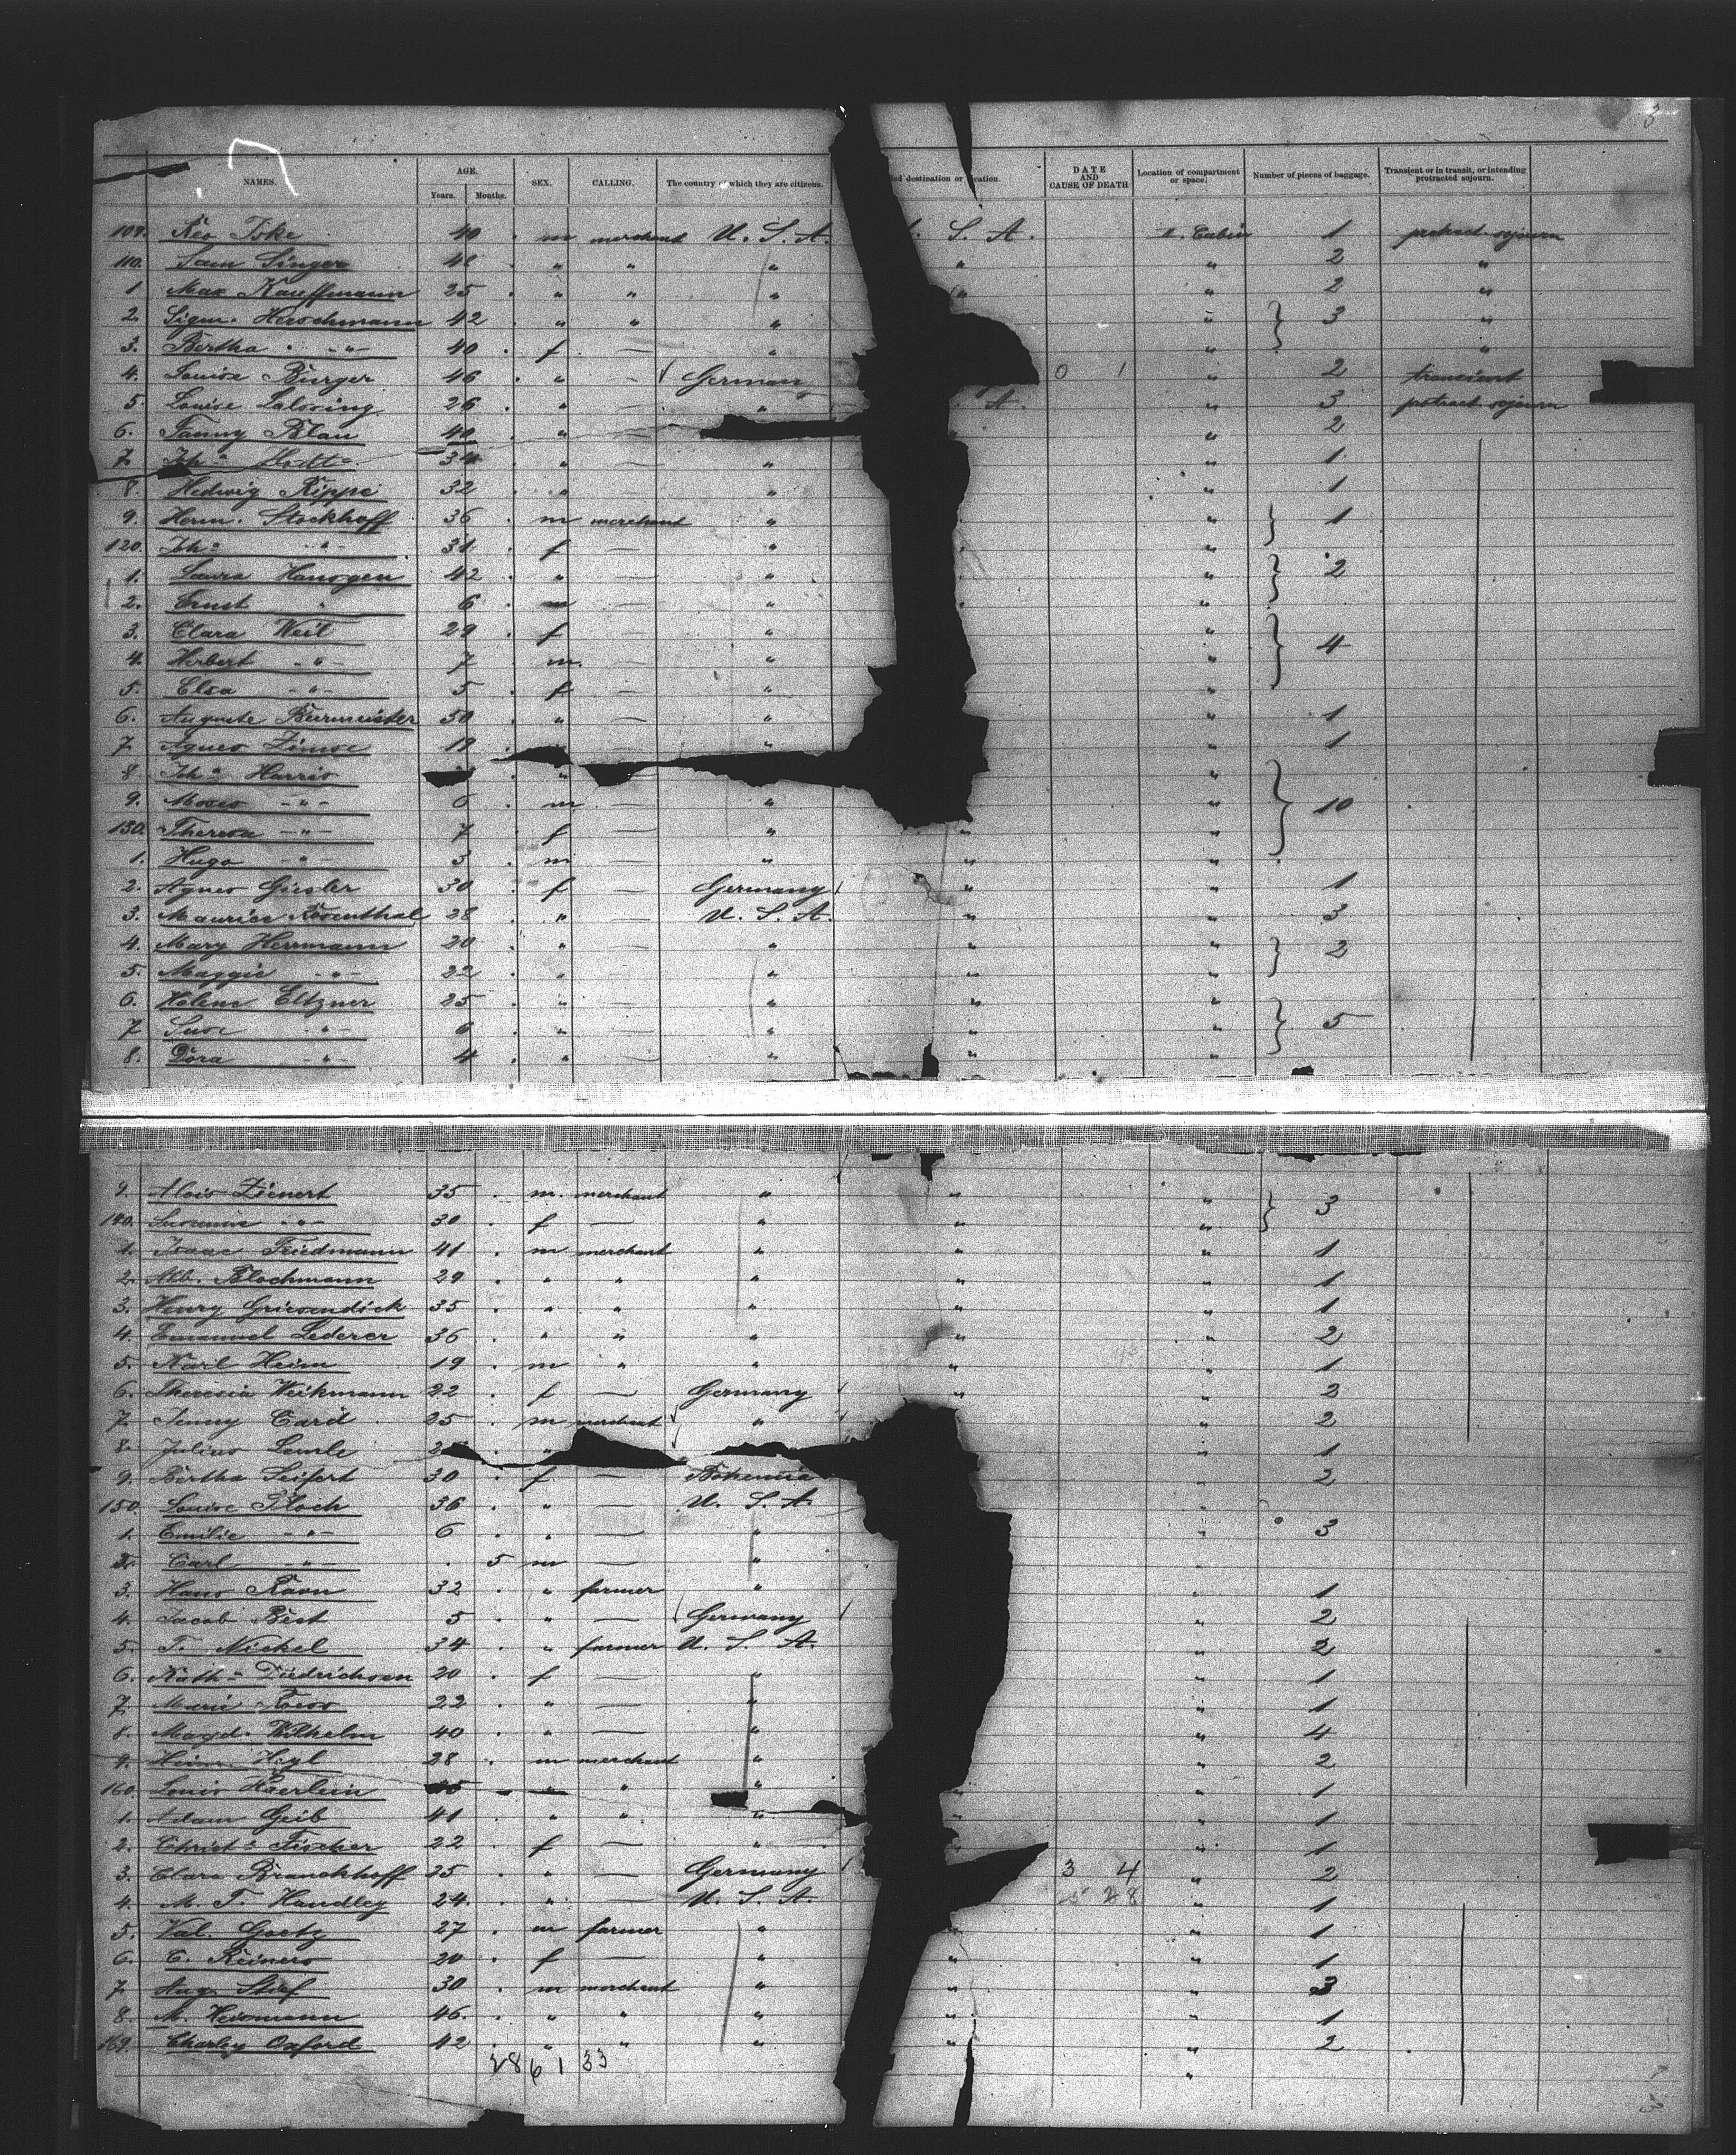 3
NAMES. AGE. Years. Months. SEX. CALLING. The country of which they are citizens. destination or location. DATE AND CAUSE OF DEATH Location of compartment or space. Number of pieces of baggage. Transient or in transit, or intending protracted sojourn.
109. Leo Iske 40 . m merchant U. S. A. S. A. II. Cabin 1 protract sojourn
110. Sam Singer " " " " " 2 "
1 Max Kauffmann 25 . " " " " " 2 "
2. Sigm. Herschmann 42 . " " " " 3 "
3. Bertha -"- 40 . f — " " "
4. Louise Bürger 46 . " — German 0 1 " 2 transient
5. Louise 26 . " — " A. " 3 protract sojourn
6. Fanny Blau 40 . " " 2
7. 34 . " — " " 1
8. Hedwig Rippe 32 . " — " " 1
9. Herm. Stockhoff 36 . m merchant " " 1
120. Joh.a -"- 31 . f — " "
1. Laura Hansgen 42 . " — " " 2
2. Ernst " 6 . m — " "
3. Clara Weil 29 . f — " " 4
4. Herbert -"- 7 m. — " "
5. Elsa -"- 5 . f — " "
6. Auguste Burmeister 50 . " — " " 1
7. Agnes Zimse 19 . " " 1
8. Joh.a Harris " " " 10
9. Moses -"- 6 . m — " "
130. Theresa -"- 7 . f — " " "
1. Hugo -"- 3 . m " " "
2. Agnes Giesler 30 . f — Germany " " 1
3. Maurice Rosenthal 28 . " — U. S. A. " " 3
4. Mary Herrmann 20 . " — " " " 2
5. Maggie -"- 22 . " — " " "
6. Helene Eltzner 25 . " — " " " 5
7. Suse -"- 6 . " — " " "
8. Dora -"- 4 . " — " " "
9. Alois Zienert 35 . m. merchant " " " 3
140. -"- 30 . f — " " "
1. Isaac Friedmann 41 . m merchant " " " 1
2. Alb. Blochmann 29 . " " " " " 1
3. Henry Griesendick 35 . " " " " " 1
4. Emanuel Lederer 36 . " " " " " 2
5. Karl Heim 19 . m " " " " 1
6. Theresia Weikmann 22 . f — Germany " " 2
7. Jenny Card . 25 . m merchant " " 2
8. Julius Lemle " " 1
9. Bertha Seifert 30 . f — Bohemia " 2
150. Louise Bloch 36 . " — U. S. A. "
1. Emilie -"- 6 . " — " " 3
2. Carl -"- . 5 m — "
3. Hans Ravn 32 . " farmer " " 1
4. Jacob Best 5 . " — Germany " 2
5. F. Nickel 34 . " farmer U. S. A. " 2
6. Kath.a Diedrichsen 20 . f — " " 1
7. Marie 22 . " — " " 1
8. Magd. Wilhelm 40 . " — " " 4
9. Heinr. Higl 28 . m merchant " " 2
160. Louis Haerlein " " " " " 1
1. Adam Geib 41 . " " " " 1
2. Christ.a Fischer 22 . f — " " " 1
3. Clara Branckhoff 25 . " — Germany 3 4 " 2
4. M. F. Handley 24. . " — U. S. A. 28 " 1
5. Val. Goetz 27 . m farmer " " " 1
6. E. Reiners 20 . f — " " " 1
7. Aug. Stief 30 . m merchant " " " 3
8. M. Heismann 46. . " " " " " 1
169. Charley Oxford 42 . " " " " " 2
28 6 1 33 "
3